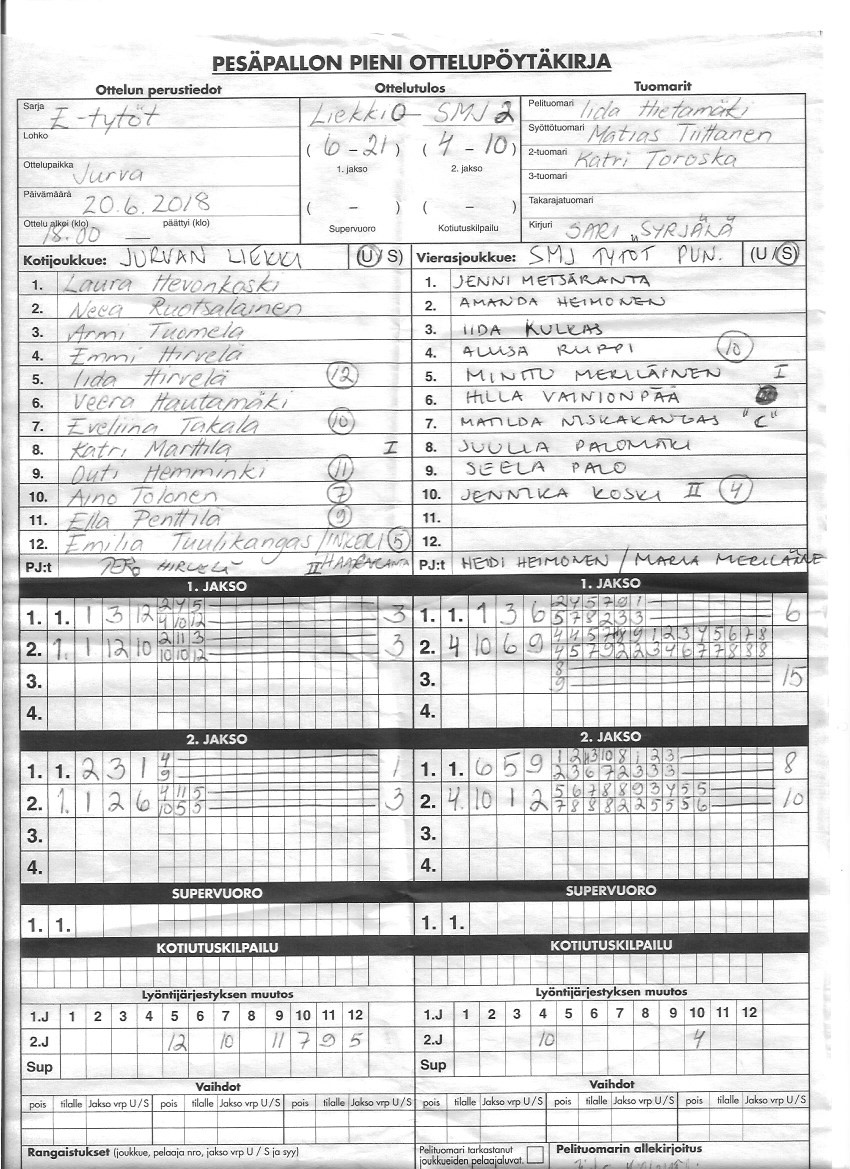 PESÄPALLON PIENI OTTELUPÖYTÄKIRJA
Ottelun perustiedot Ottelutulos Tuomarit
Sarja E-tytöt
Lohko
Ottelupaikka Jurva
Päivämäärä 20.6.2018
Ottelu alkoi (klo) 18.00 päättyi (klo) —
Liekki 0 - SMJ 2
(6 - 21) (4 - 10)
1. jakso 2. jakso
( - ) ( - )
Supervuoro Kotiutuskilpailu
Pelituomari Iida Hietamäki
Syöttötuomari Matias Tiittanen
2-tuomari Katri Toroska
3-tuomari
Takarajatuomari
Kirjuri SARI SYRJÄLÄ
Kotijoukkue: JURVAN LIEKKI (U/S)
1. Laura Hevonkoski
2. Neea Ruotsalainen
3. Armi Tuomela
4. Emmi Hirvelä
5. Iida Hirvelä 12
6. Veera Hautamäki
7. Eveliina Takala 10
8. Katri Marttila I
9. Outi Hemminki 11
10. Aino Tolonen 7
11. Ella Penttilä 9
12. Emilia Tuulikangas / INKERI 5
PJ:t PERO HIRVELÄ II HAARAKANTA
Vierasjoukkue: SMJ TYTÖT PUN. (U/S)
1. JENNI METSÄRANTA
2. AMANDA HEIMONEN
3. IIDA KULLAS
4. ALIISA RUPPI 10
5. MINTTU MERILÄINEN I
6. HILLA VAINIONPÄÄ
7. MATILDA NISKAKANGAS "C"
8. JUULIA PALOMÄKI
9. SEELA PALO
10. JENNIKA KOSKI II 4
11.
12.
PJ:t HEIDI HEIMONEN / MARIA MERILÄINE
1. JAKSO 1. JAKSO
1. 1. 1 3 12 2 4 5 3
4 10 12
2. 1. 1 12 10 2 11 3 3
10 10 12
3.
4.
1. 1. 1 3 6 2 4 5 7 9 1 6
5 7 8 2 3 3
2. 4 10 6 9 4 4 5 7 8 9 1 2 3 4 5 6 7 8
4 5 7 9 2 2 3 4 6 7 7 8 8 8
3. 8 15
9
4.
2. JAKSO 2. JAKSO
1. 1. 2 3 1 4 1
9
2. 1. 1 2 6 4 11 5 3
10 5 5
3.
4.
1. 1. 6 5 9 1 2 3 10 8 1 2 3 8
2 3 6 7 2 3 3 3
2. 4. 10 1 2 5 6 7 8 8 9 3 4 5 5 10
7 8 8 8 2 2 5 5 5 6
3.
4.
SUPERVUORO SUPERVUORO
1. 1. 1. 1.
KOTIUTUSKILPAILU KOTIUTUSKILPAILU
Lyöntijärjestyksen muutos Lyöntijärjestyksen muutos
1.J 1 2 3 4 5 6 7 8 9 10 11 12 1.J 1 2 3 4 5 6 7 8 9 10 11 12
2.J 12 10 11 7 9 5 2.J 10 4
Sup Sup
Vaihdot Vaihdot
pois tilalle Jakso vrp U/S pois tilalle Jakso vrp U/S pois tilalle pois tilalle Jakso vrp U/S pois tilalle Jakso vrp U/S pois tilalle
Rangaistukset (joukkue, pelaaja nro, jakso vrp U / S ja syy) Pelituomari tarkastanut Pelituomarin allekirjoitus
joukkueiden pelaajaluvat.